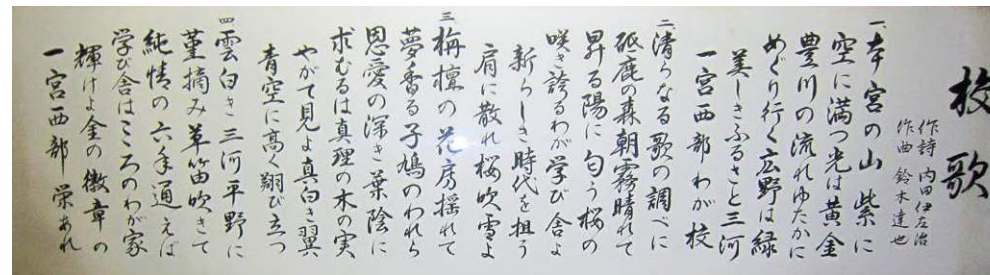 校歌
作詩 内田伊左治
作曲 鈴木達也
一、本宮の山 紫に
空に満つ光は黄金
豊川の流れゆたかに
めぐり行く広野は緑
美しきふるさと三河
一宮西部 わが校
二、清らなる歌の調べに
砥鹿の森朝霧晴れて
昇る陽に匂う桜の
咲き誇るわが学び舎よ
新らしき時代を担う
肩に散れ桜吹雪よ
三 栴檀の花房揺れて
夢香る子鳩のわれら
恩愛の深き葉陰に
求むるは真理の木の実
やがて見よ真白き翼
青空に高く翔び立つ
四 雲白き三河平野に
菫摘み草笛吹きて
純情の六年通えば
学び舎はこころのわが家
輝けよ金の徽章の
一宮西部 栄あれ